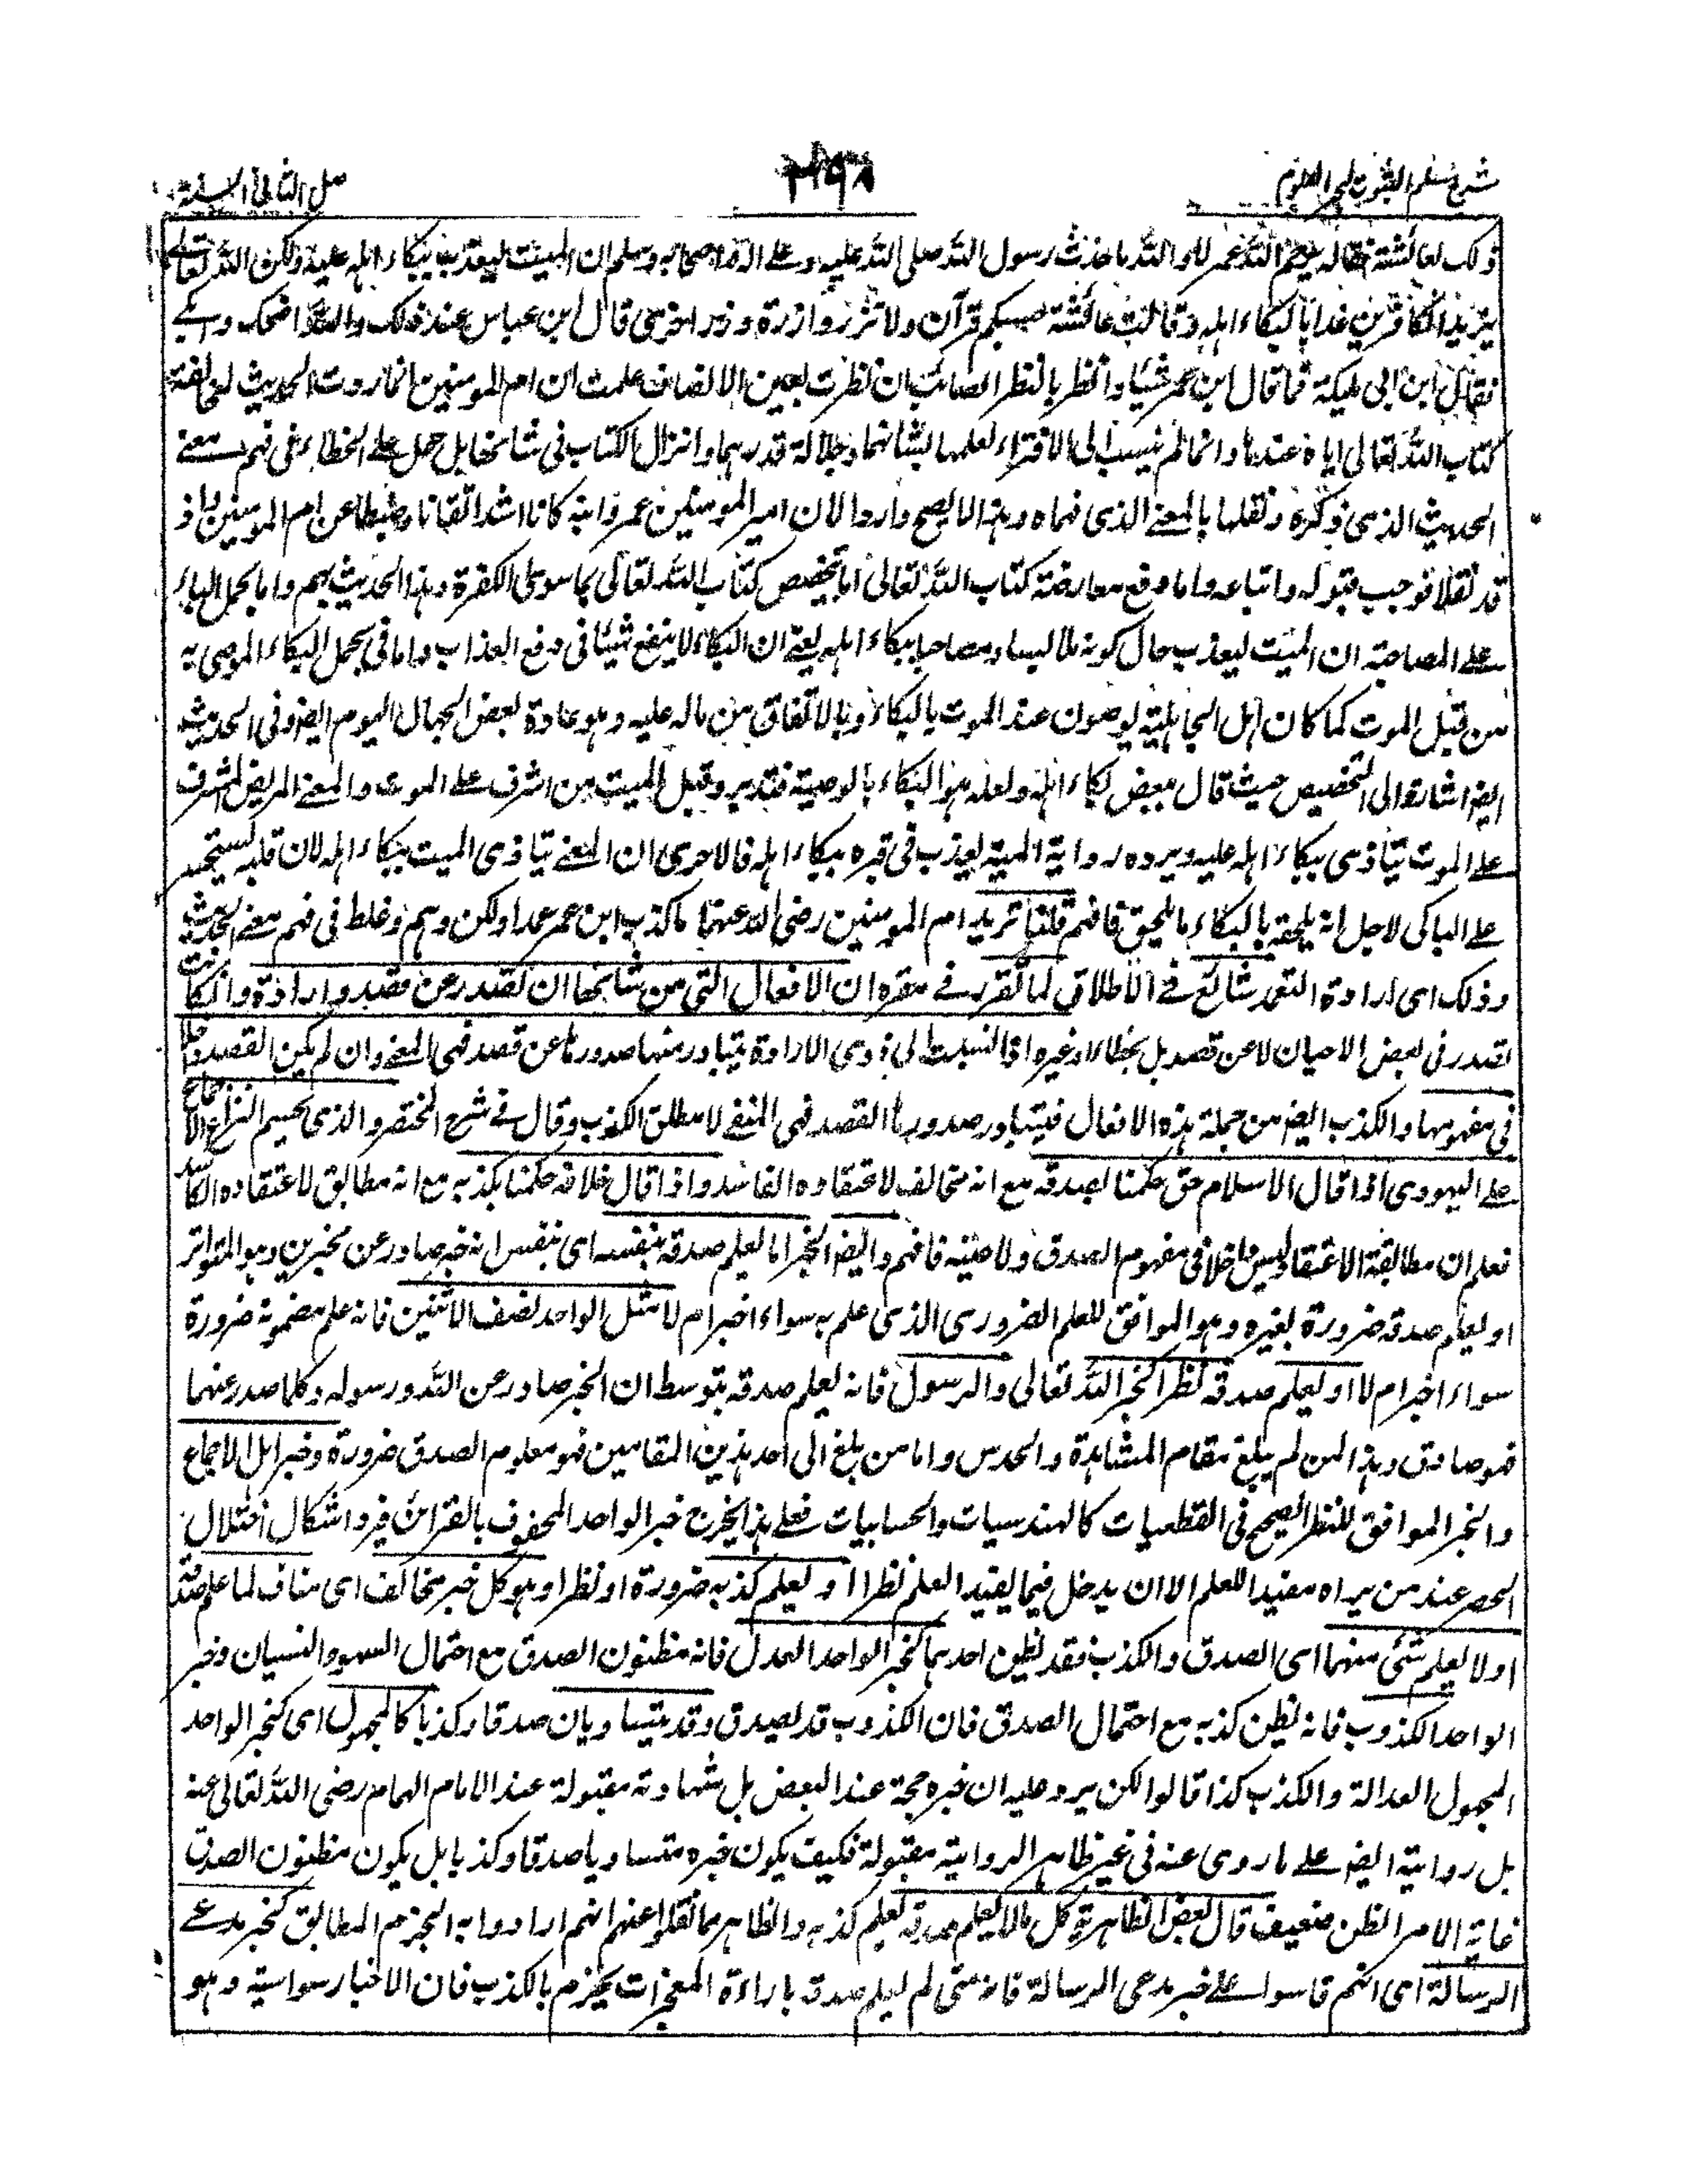 شرح مسلم الثبوت لبحر العلوم
۳۹۸
ذلك لعائشة فقالت يرحم الله عمر لا والله ما حدث رسول الله صلى الله عليه وعلى آله واصحابه وسلم ان الميت ليعذب ببكاء اهله عليه ولكن الله تعالى
يزيد الكافرين عذابا ببكاء اهله وقالت عائشة حسبكم قرآن ولا تزر وازرة وزر اخرى قال ابن عباس عند ذلك والله اضحك وابكى
فقال ابن ابى مليكة فما قال ابن عمر شيئا وانظر بالنظر الصائب ان نظرت بعين الانصاف علمت ان ام المومنين انما ردت الحديث لمخالفة
كتاب الله تعالى اياه عندها وانما لم ينسب الى الافتراء لعلمها بشانهما وجلالة قدرهما وانزال الكتاب فى شانهما بل حمل على الخطاء فى فهم معنى
الحديث الذى ذكره ونقلها بالمعنى الذى فهماه وهذا لا يصح واردا لان امير المومنين عمر وابنه كانا اشد اتقانا وضبطا عن ام المومنين واذ
قد نقلا فوجب قبوله واتباعه واما دفع معارضة كتاب الله تعالى اما بتخصيص كتاب الله تعالى بما سوى الكفرة وهذا الحديث بهم واما بحمل الباء
على المصاحبة ان الميت ليعذب حال كونه ملابسا ومصاحبا ببكاء اهله يعنى ان البكاء لا ينفع شيئا فى دفع العذاب واما فى بحمل البكاء الموصى به
من قبل الموت كما كان اهل الجاهلية يوصون عند الموت بالبكاء وبالاتفاق من ماله عليه وهو عادة بعض الجهال اليوم ايضا وفى الحديث
ايضا اشارة الى التخصيص حيث قال ببعض بكاء اهله ولعله هو البكاء بالوصية فتدبر وقيل الميت من اشرف على الموت والمعنى المريض المشرف
على الموت يتاذى ببكاء اهله عليه ويرده رواية الميت يعذب فى قبره ببكاء اهله فالاحرى ان المعنى يتاذى الميت ببكاء اهله لان قلبه
على الباكى لاجل انه يلحقه بالبكاء ما يلحق فافهم قلنا تريد ام المومنين رضى الله عنها ما كذب ابن عمر عمدا ولكن وهم وغلط فى فهم معنى الحديث
وذلك اى ارادة التعمد شائع فى الاطلاق لما تقرر فى مقره ان الافعال التى من شانها ان تصدر عن قصد وارادة وان كانت
تصدر فى بعض الاحيان لا عن قصد بل بخطاء او غيره اذا نسبت الى ذوى الارادة يتبادر منها صدورها عن قصد فهى المعنى وان لم يكن القصد داخلا
فى مفهومها والكذب ايضا من جملة هذه الافعال فيتبادر صدورها بالقصد فهى المنفى لا مطلق الكذب وقال فى شرح المختصر والذى يحسم النزاع الاجماع
على اليهودى اذا قال الاسلام حق حكمنا بصدقه مع انه مخالف لاعتقاده الفاسد واذا قال خلافه حكمنا بكذبه مع انه مطابق لاعتقاده الكاسد
فعلم ان مطابقة الاعتقاد ليس داخلا فى مفهوم الصدق ولا عينه فافهم وايضا الخبر اما يعلم صدقه بنفسه اى بنفس انه خبر صادر عن مخبرين وهو المتواتر
او يعلم صدقه ضرورة بغيره وهو الموافق للعلم الضرورى الذى علم به سواء اخبر ام لا مثل الواحد نصف الاثنين فانه علم مضمونه ضرورة
سواء اخبر ام لا او يعلم صدقه نظرا كخبر الله تعالى والرسول فانه يعلم صدقه بتوسط ان الخبر صادر عن الله ورسوله وكلما صدر عنهما
فهو صادق وهذا لمن لم يبلغ مقام المشاهدة والحدس واما من بلغ الى احد هذين المقامين فهو معلوم الصدق ضرورة وخبر اهل الاجماع
والخبر الموافق للنظر الصحيح فى القطعيات كالهندسيات والحسابيات فعلى هذا يخرج خبر الواحد المحفوف بالقرائن فيرد اشكال اختلال
الحصر عند من يراه مفيدا للعلم الا ان يدخل فيما يفيد العلم نظرا او يعلم كذبه ضرورة او نظرا وهو كل خبر مخالف اى مناف لما علم صدقه
او لا يعلم شئ منهما اى الصدق والكذب فقد يظن احدهما كخبر الواحد العدل فانه مظنون الصدق مع احتمال السهو والنسيان وخبر
الواحد الكذوب فانه يظن كذبه مع احتمال الصدق فان الكذوب قد يصدق وقد يتساويان صدقا وكذبا كالمجهول اى كخبر الواحد
المجهول العدالة والكذب كذا قالوا لكن يرد عليه ان خبره حجة عند البعض بل شهادته مقبولة عند الامام الهمام رضى الله تعالى عنه
بل روايته ايضا على ما روى عنه فى غير ظاهر الرواية مقبولة فكيف يكون خبره متساويا صدقا وكذبا بل يكون مظنون الصدق
غاية الامر الظن ضعيف قال بعض الظاهرية كل ما لا يعلم صدقه يعلم كذبه والظاهر مما نقلوا عنهم انهم ارادوا به الجزم المطابق كخبر مدعى
الرسالة اى انهم قاسوا على خبر مدعى الرسالة فانه متى لم يعلم صدقه باراءة المعجزات يجزم بالكذب فان الاخبار سواسية وهو